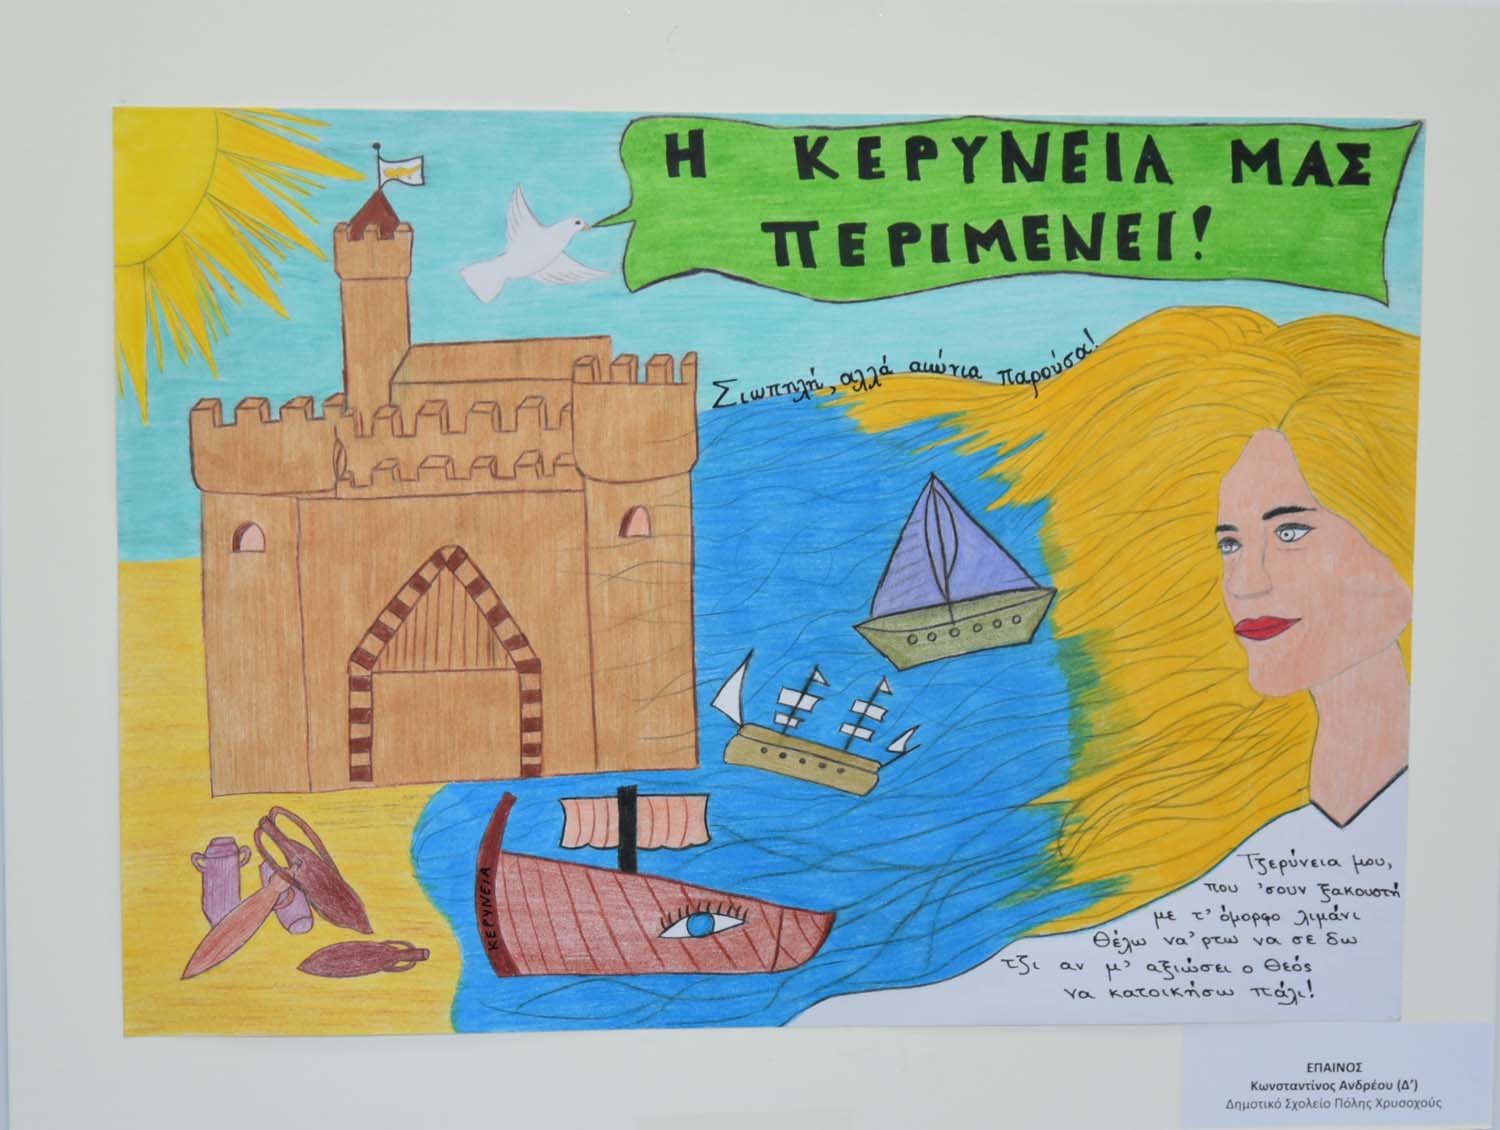 Η ΚΕΡΥΝΕΙΑ ΜΑΣ
ΠΕΡΙΜΕΝΕΙ!
Σιωπηλή, αλλά αιώνια παρούσα!
ΚΕΡΥΝΕΙΑ
Τζερύνεια μου,
που 'σουν ξακουστή
με τ' όμορφο λιμάνι
Θέλω να 'ρτω να σε δω
τζι αν μ' αξιώσει ο Θεός
να κατοικήσω πάλι!
ΕΠΑΙΝΟΣ
Κωνσταντίνος Ανδρέου (Δ')
Δημοτικό Σχολείο Πόλης Χρυσοχούς